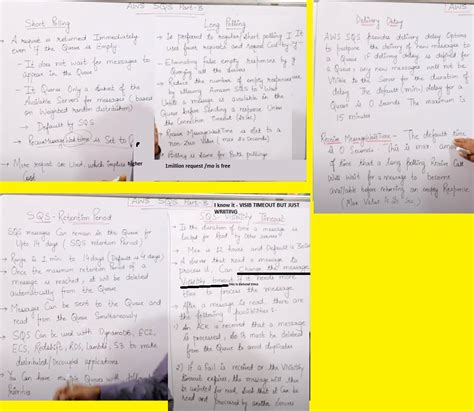 AWS SQS Part-B
Short Polling
- A request is returned Immediately
even if the Queue is Empty
- It does not wait for messages to
appear in the Queue
- It Queries Only a Subset of the
Available Servers for messages (based
on Weighted random distribution)
→ Default of SQS
→ ReceiveMessageWaitTime is Set to 0
- More request are Used, which implies higher
Long Polling
- Is preferred to regular/short polling, It
uses fewer requests and reduces Cost by :-
- Eliminating false empty responses by
Querying all the servers
- Reduce the number of empty responses
by allowing Amazon SQS to Wait
Until a message is available in the
Queue before Sending a response Unless
the Connection timeout (20 Sec)
- Receive Message Wait Time is Set to a
non Zero Value (max 20 Seconds)
- Polling is done for Both pollings
1million request /mo is free
AWS
Delivery Delay
AWS SQS Provides delivery delay Options
to postpone the delivery of new messages to
a Queue. if delivery delay is defined for
a Queue, any new message will not be
Visible to the Server for the duration of
delay. The default (min) delay for a
Queue is 0 Seconds. The maximum is
15 minutes
Receive Message Wait Time - The default time
is 0 Seconds. This is max amount
of time that a long Polling Receive Call
will wait for a message to become
available before returning an empty Response
(Max Value is 20 Sec)
AWS SQS Part-B
SQS - Retention Period
SQS messages Can remain in the Queue for
Upto 14 days (SQS retention Period)
- Range is 1 min to 14 days (Default is 4 days)
- Once the maximum retention Period of a
message is reached, it will be deleted
automatically from the Queue
- Messages Can be Sent to the Queue and
read from the Queue Simultaneously
- SQS Can be Used with DynamoDB, EC2,
ECS, Redshift, RDS, Lambda, S3 to make
distributed/Decoupled applications
- You Can have multiple Queues with
Priorities
I know it - VISIB TIMEOUT BUT JUST
WRITING
SQS - Visibility Timeout
- Is the duration of time a message is
locked for Read by Other Servers
- Max is 12 hours and Default is 30 Sec
- A Server that read a message to
process it, Can Change the message
Visibility timeout if it needs more
this is Extend time
time to process the message
- After a message is read, there are
the following possibilities :-
1) An ACK is received that a message
is processed, so it must be deleted
from the Queue to avoid duplicates
2) If a Fail is received or the Visibility
timeout expires, the message will then
be unlocked for read, Such that it Can be
read and processed by another Servers